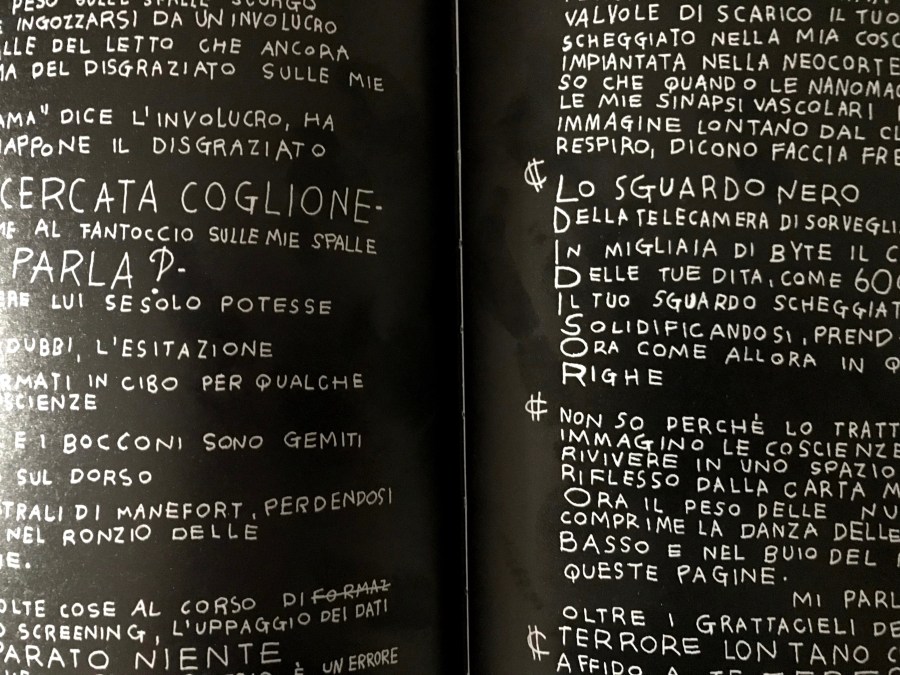 PESO SULLE SPALLE SCORGO
E INGOZZARSI DA UN INVOLUCRO
LLE DEL LETTO CHE ANCORA
MA DEL DISGRAZIATO SULLE MIE
AMA" DICE L'INVOLUCRO, HA
IAPPONE IL DISGRAZIATO
CERCATA COGLIONE-
ME AL FANTOCCIO SULLE MIE SPALLE
PARLA?-
ERE LUI SE SOLO POTESSE
DUBBI, L'ESITAZIONE
RMATI IN CIBO PER QUALCHE
SCIENZE
E I BOCCONI SONO GEMITI
SUL DORSO
TRALI DI MANEFORT, PERDENDOSI
NEL RONZIO DELLE
NE.
OLTE COSE AL CORSO DI FORMAZ
O SCREENING, L'UPPAGGIO DEI DATI
PARATO NIENTE
È UN ERRORE
VALVOLE DI SCARICO IL TUO
SCHEGGIATO NELLA MIA COSC
IMPIANTATA NELLA NEOCORTE
SO CHE QUANDO LE NANOMAC
LE MIE SINAPSI VASCOLARI
IMMAGINE LONTANO DAL CL
RESPIRO, DICONO FACCIA FRE
LO SGUARDO NERO
DELLA TELECAMERA DI SORVEGLI
IN MIGLIAIA DI BYTE IL C
DELLE TUE DITA, COME 600
IL TUO SGUARDO SCHEGGIAT
SOLIDIFICANDOSI, PREND
ORA COME ALLORA IN Q
RIGHE
NON SO PERCHÈ LO TRATT
IMMAGINO LE COSCIENZE
RIVIVERE IN UNO SPAZIO
RIFLESSO DALLA CARTA M
ORA IL PESO DELLE NU
COMPRIME LA DANZA DELLE
BASSO E NEL BUIO DEL
QUESTE PAGINE.
MI PARL
OLTRE I GRATTACIELI DE
TERRORE LONTANO C
AFFIDO A TE